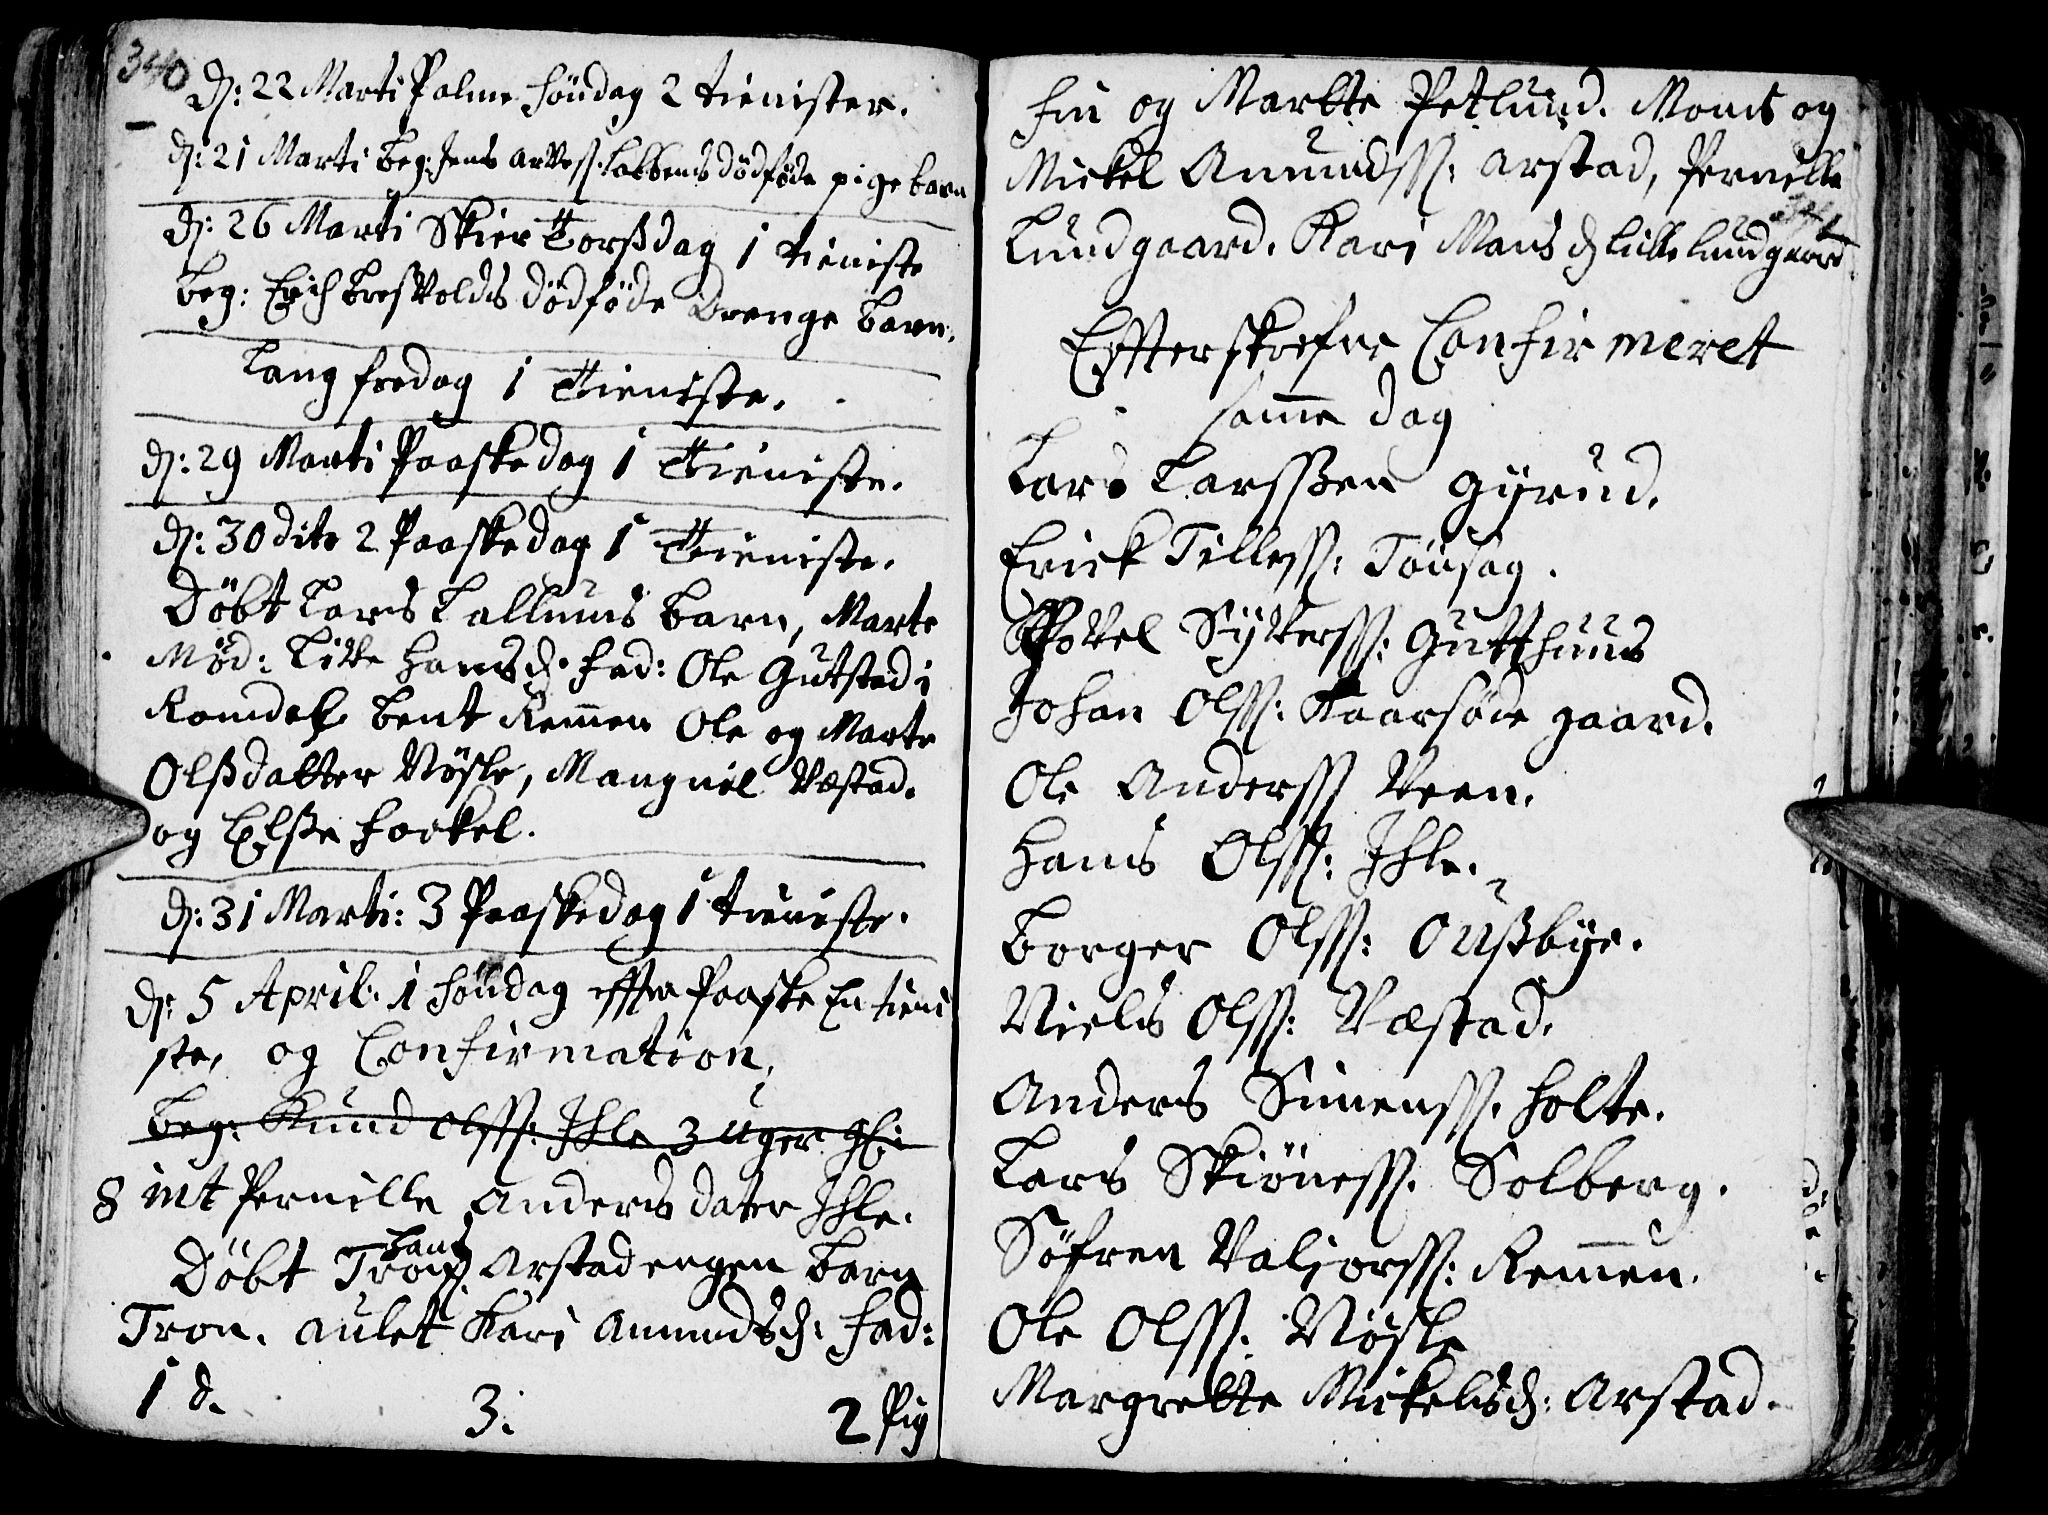 340
d: 22 Marti Palme Söndag 2 tienister.
d: 21 Marti Beg: Jens Arvess: Labbens dödföde pige barn
d: 26 Marti Skier Torßdag 1 tieniste
Beg: Erich Bresvolds dödföde Drenge barn.
Lang fredag 1 Tieniste.
d: 29 Marti Paaskedag 1 Tieniste.
d: 30 dito 2 Paaskedag 1 Tieniste.
Döbt Lars Lallums barn, Marte
Mod: Live Hansd: fad: Ole Gutstad i
Romdal. Bent Remmen Ole og Marte
Olßdatter Nösle, Mangnil Væstad.
og Elße Forkel.
d: 31 Marti: 3 Paaskedag 1 tieniste.
d: 5 April: 1 Söndag effter Paaske En tieni
ste, og Confirmation,
Beg: Knud Olss: Ihle 3 Uger gl:
8 int Pernille Anders dater Ihle.
hans
Döbt Tron Arstadengen barn
Tron. aulet Kari Amundsd: fad:
1 d. 3. 2 Pig
Siu og Martte Petlund. Mons og
Mickel Amundss: Arstad, Pernille
341
Lundgaard. Kari Mons d lille lundgaard.
Effterskrefne Confirmeret
samme dag
Lars Larsßen Gyrud.
Erick Tilless: Tousag.
Povel Syverss: Gutthuus
Johan Olss: Kaarsöde gaard.
Ole Anderss Veen.
Hans Olss: Ihle.
Borger Olss: Oußbye.
Niels Olss: Væstad.
Anders Simenss. Holte.
Lars Skiöness. Solberg.
Söfren Valiorss: Remmen.
Ole Olss: Nösle
Margrette Mickelsd: Arstad.